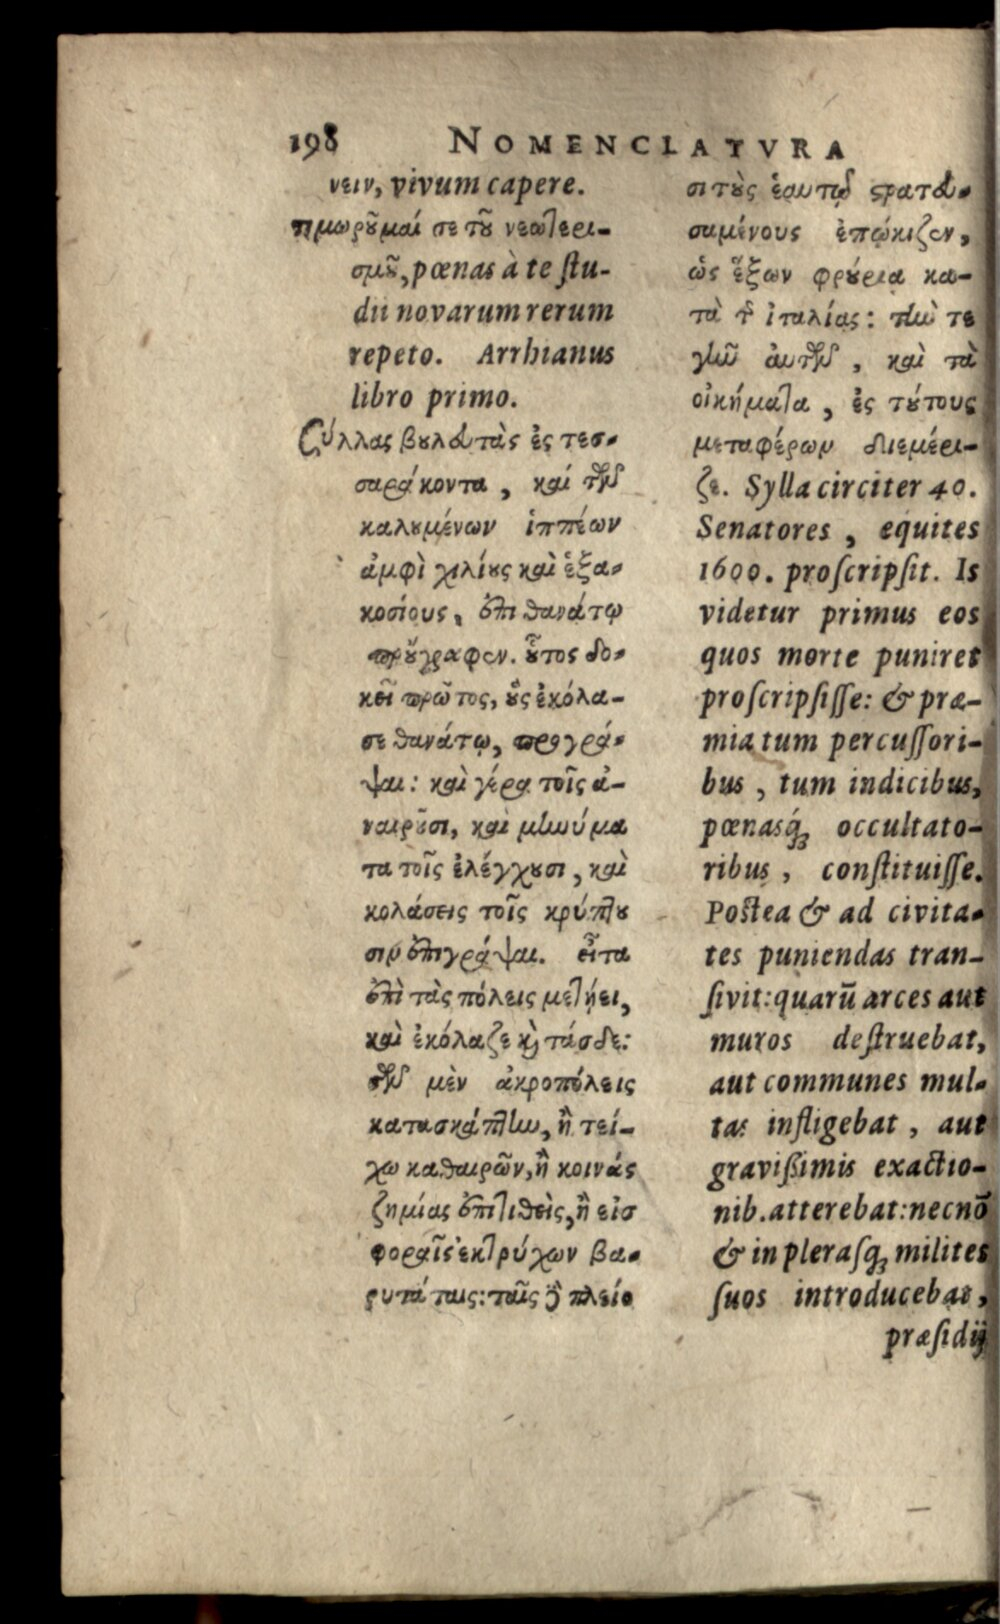 198 NOMENCLATVRA
νειν, vivum capere.
τιμωροῦμαί σε τοῦ νεωτερι-
σμοῦ, pœnas à te ſtu-
dii novarum rerum
repeto. Arrhianus
libro primo.
Σύλλας βουλευτὰς ἐς τεσ-
σαράκοντα, καί τῶν
καλουμένων ἱππέων
ἀμφὶ χιλίους καὶ ἑξα-
κοσίους, ἐπὶ θανάτῳ
προὔγραφεν. οὗτος δο-
κεῖ πρῶτος, οὓς ἐκόλα-
σε θανάτῳ, προγρά-
ψαι: καὶ γέρα τοῖς ἀ-
ναιροῦσι, καὶ μηνύμα
τα τοῖς ἐλέγχουσι, καὶ
κολάσεις τοῖς κρύπτου
σιν ἐπιγράψαι. εἶτα
ἐπὶ τὰς πόλεις μετῄει,
καὶ ἐκόλαζε καὶ τάσδε:
τῶν μὲν ἀκροπόλεις
κατασκάπτων, ἢ τεί-
χω καθαιρῶν, ἢ κοινάς
ζημίας ἐπιτιθεὶς, ἢ εἰσ
φοραῖς ἐκτρύχων βα-
ρυτάταις: ταῖς δὲ πλείο
σι τοὺς ἑαυτῷ στρατευ-
σαμένους ἐπῴκιζεν,
ὡς ἕξων φρούρια κα-
τὰ τῆς ἰταλίας: τήν τε
γῆν αὐτῶν, καὶ τὰ
οἰκήματα, ἐς τούτους
μεταφέρων διεμέρι-
ζε. Sylla circiter 40.
Senatores, equites
1600. proſcripſit. Is
videtur primus eos
quos morte puniret
proſcripſiſſe: & præ-
mia tum percuſſori-
bus, tum indicibus,
pœnasq́; occultato-
ribus, conſtituiſſe.
Poſtea & ad civita-
tes puniendas tran-
ſivit: quarū arces aut
muros deſtruebat,
aut communes mul-
tas infligebat, aut
graviſsimis exactio-
nib. atterebat: necnō
& in pleraſq; milites
ſuos introducebat,
præſidij